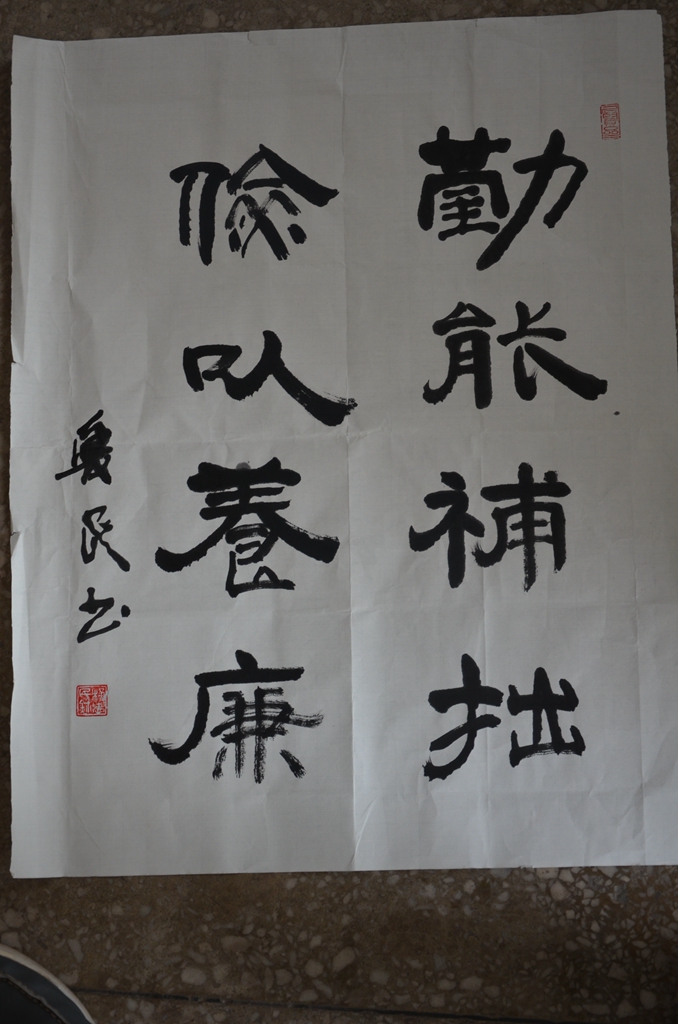 勤能補拙
儉以養廉
民书